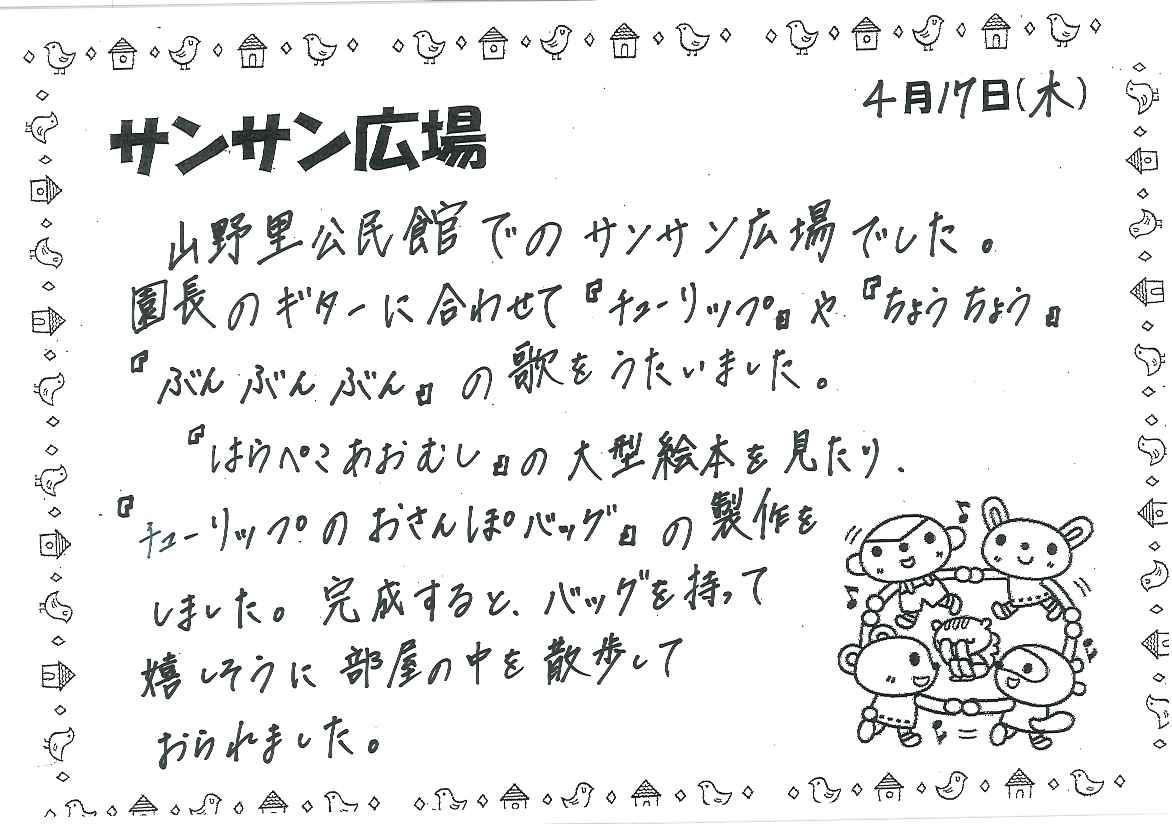 4月17日(木)
サンサン広場
山野里公民館でのサンサン広場でした。
園長のギターに合わせて『チューリップ』や『ちょうちょう』
『ぶんぶんぶん』の歌をうたいました。
『はらぺこあおむし』の大型絵本を見たり、
『チューリップのおさんぽバッグ』の製作を
しました。完成すると、バッグを持って
嬉しそうに部屋の中を散歩して
おられました。